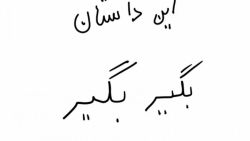 این داستان
بگیر بگیر